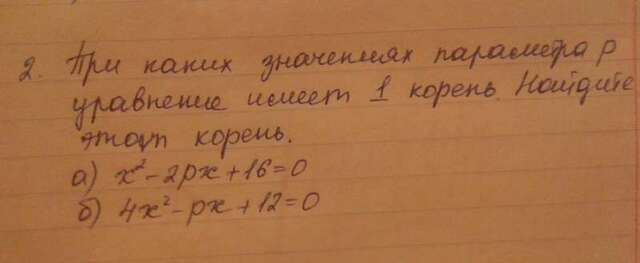 2. При каких значениях параметра p
уравнение имеет 1 корень. Найдите
этот корень.
а) x²-2px+16=0
б) 4x²-px+12=0